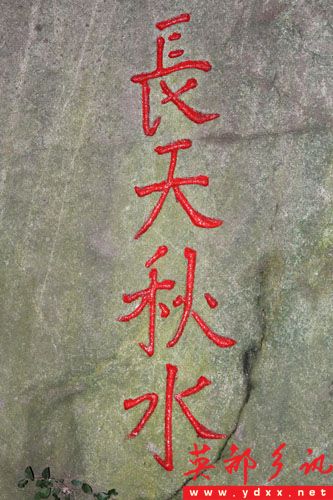 長天秋水
英都乡讯
www.ydxx.net